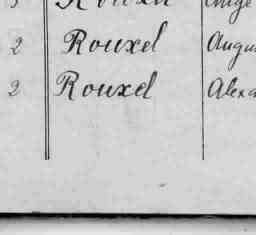 2 Rouxel Augu
2 Rouxel Alexa